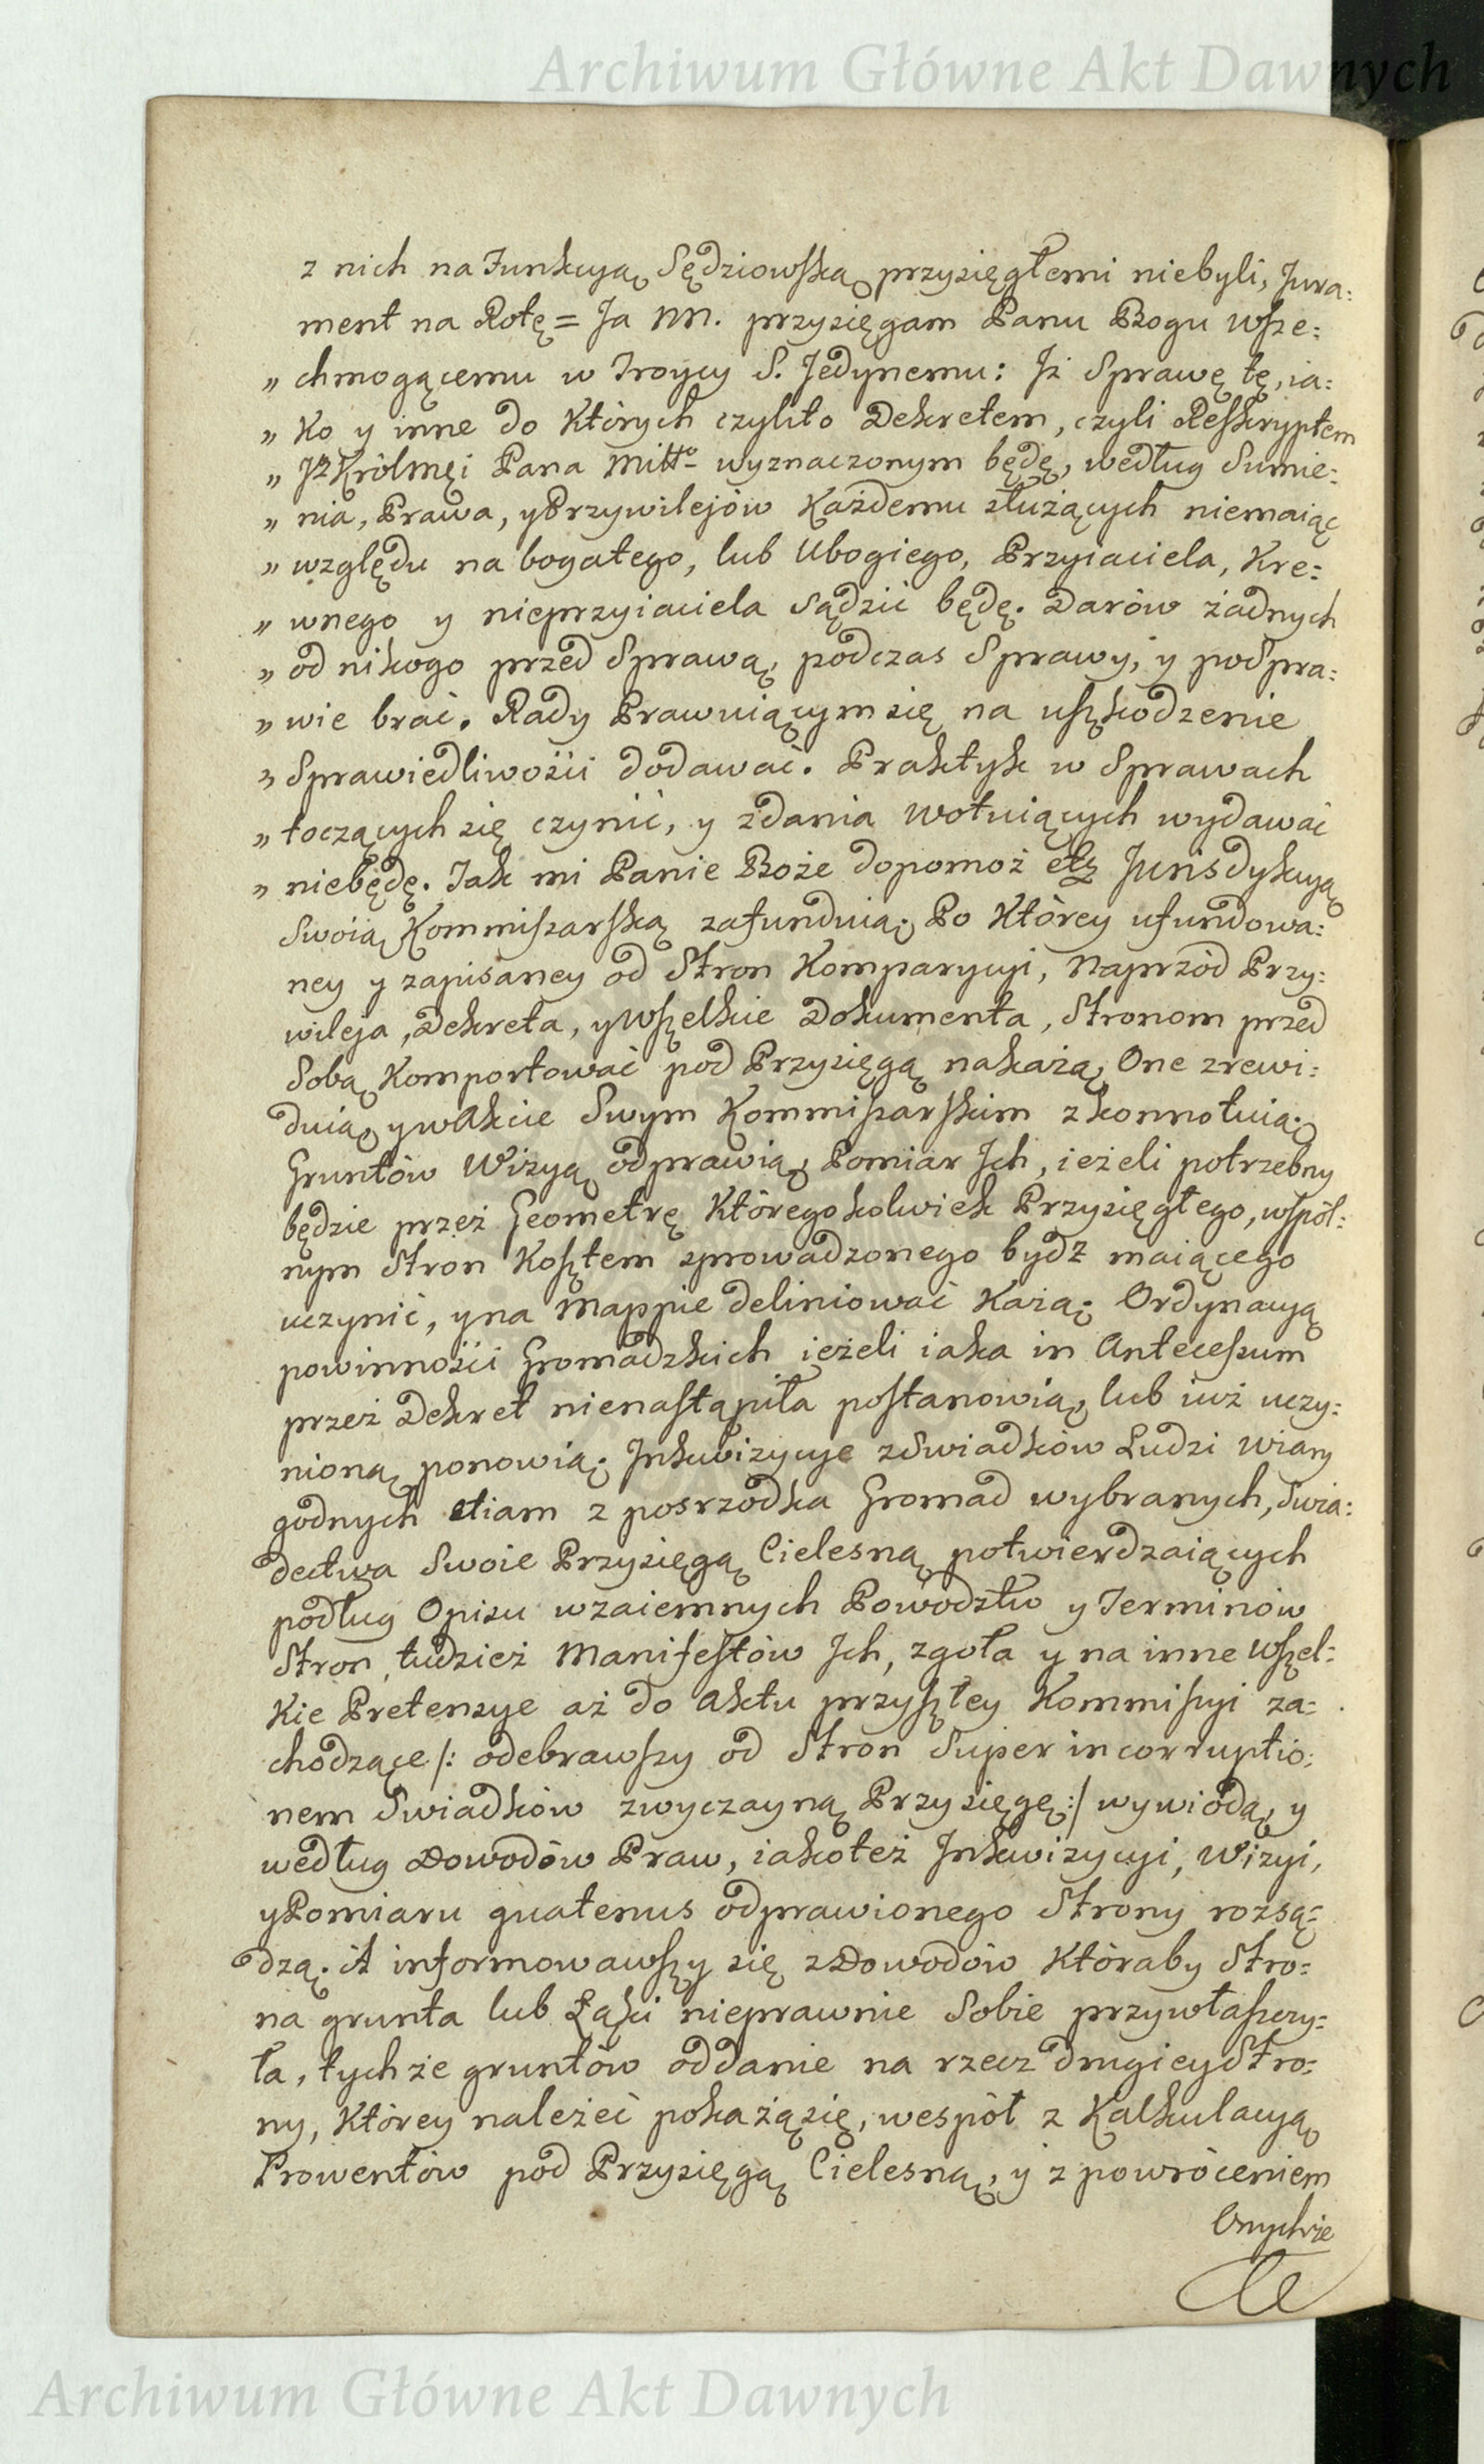 Archiwum Główne Akt Dawnych
z nich na Funkcyą Sędziowską przysięgłemi niebyli, Jura=
ment na Rotę = Ja NN. przysięgam Panu Bogu Wsze=
„ chmogącemu w Troycy S. Jedynemu: Jż Sprawę tę, ia=
„ ko y inne do Których czylito Dekretem, czyli Reskryptem
„ JKrólmci Pana Mttgo wyznaczonym będę, według Sumie=
„ nia, Prawa, y Przywilejów Każdemu służących niemaiąc
„ względu na bogatego, lub Ubogiego, Przyiaciela, Kre=
„ wnego y nieprzyiaciela sądzić będę. Darów żadnych
„ od nikogo przed Sprawą, podczas Sprawy, y poSpra=
„ wie brać. Rady Prawuiącym się na uszkodzenie
„ Sprawiedliwości dodawać. Praktyk w Sprawach
„ toczących się czynić, y zdania Wotuiących wydawać
„ niebędę. Tak mi Panie Boże dopomoż etz Jurisdykcyą
Swoią Kommissarską zafunduią; Po Którey ufundowa=
ney y zapisaney od Stron Komparycyi, Naprzód Przy=
wileja, Dekreta, y Wszelkie Dokumenta, Stronom przed
Sobą Komportować pod Przysięgą nakażą, One zrewi=
duią, y w Akcie Swym Kommissarskim zkonnotuią;
Gruntów Wizyą odprawią, Pomiar Jch, ieżeli potrzebny
będzie przez Geometrę Któregokolwiek Przysięgłego, wspól=
nym Stron Kosztem sprowadzonego bydź maiącego
uczynić, y na Mappie deliniować Każą; Ordynacyą
powinności Gromadzkich ieżeli iaka in Antecessum
przez Dekret nienastąpiła postanowią, lub iuż uczy=
nioną ponowią; Jnkwizycye z Swiadków Ludzi Wiary
godnych etiam z posrzodka Gromad wybranych, Swia=
dectwa Swoie Przysięgą Cielesną potwierdzaiących
podług Opisu wzaiemnych Powodztw y Terminów
Stron, tudzież Manifestów Jch, zgoła y na inne Wszel=
kie Pretensye aż do Aktu przyszłey Kommissyi za=
chodzące /: odebrawszy od Stron Super incorruptio=
nem Swiadków zwyczayną Przysięgę :/ wywiodą, y
według Dowodów Praw, iakoteż Jnkwizycyi, Wizyi,
y Pomiaru quatenus odprawionego Strony rozsą=
dzą. A informowawszy się z Dowodów Któraby Stro=
na grunta lub Łąki nieprawnie Sobie przywłaszczy=
ła, tychże gruntów oddanie na rzecz drugiey Stro=
ny, Którey należeć pokażą się, wespół z Kalkulacyą
Prowentów pod Przysięgą Cielesną, y z powróceniem
Onychże
Archiwum Główne Akt Dawnych